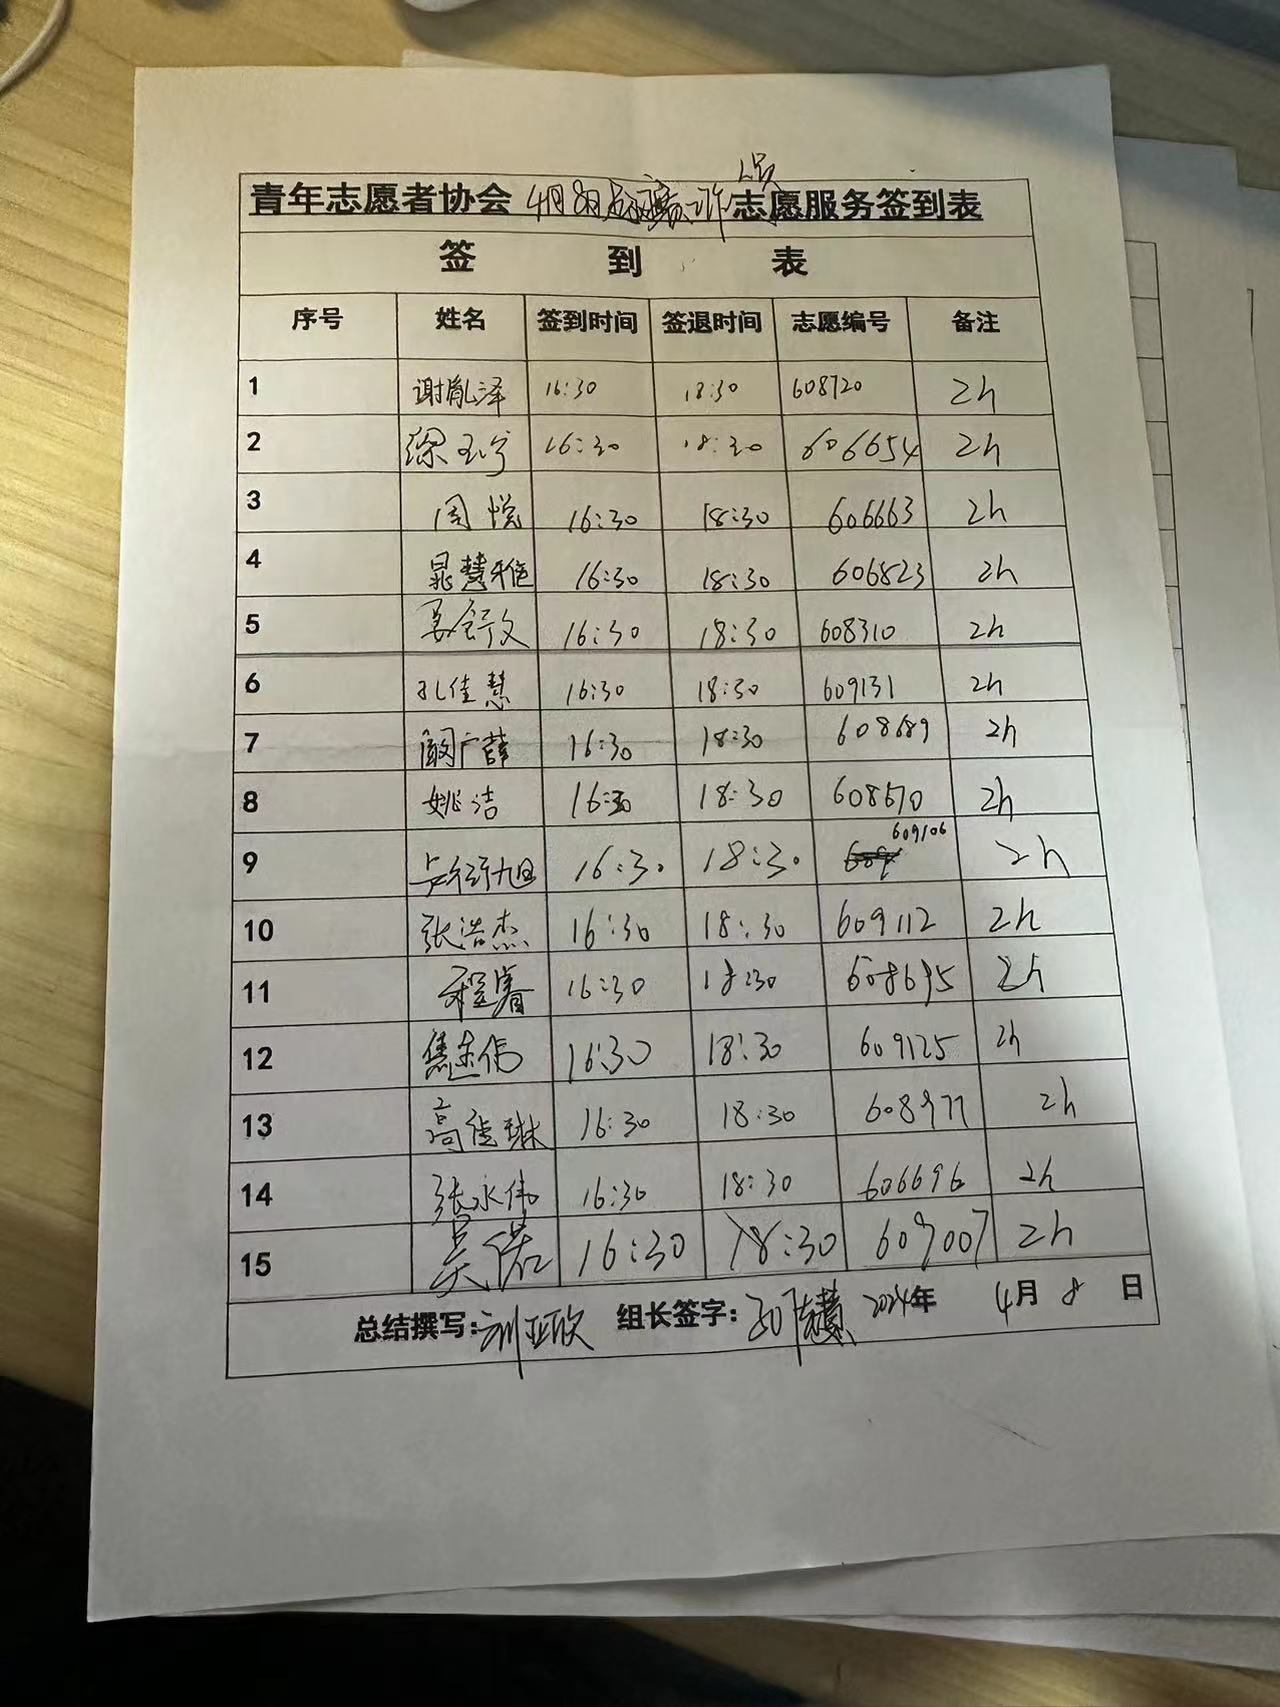 青年志愿者协会 4月8日 志愿服务签到表
签 到 表
序号 姓名 签到时间 签退时间 志愿编号 备注
1 谢胤泽 16:30 18:30 608720 2h
2 徐玉宁 16:30 18:30 606654 2h
3 周悦 16:30 18:30 606663 2h
4 晁慧雅 16:30 18:30 606823 2h
5 姜舒文 16:30 18:30 608310 2h
6 孔佳慧 16:30 18:30 609131 2h
7 阚广薛 16:30 18:30 608689 2h
8 姚洁 16:30 18:30 608670 2h
9 16:30 18:30 609106 2h
10 张浩杰 16:30 18:30 609112 2h
11 程睿 16:30 18:30 608695 2h
12 16:30 18:30 609125 2h
13 高佳琳 16:30 18:30 608977 2h
14 张永伟 16:30 18:30 606696 2h
15 吴诺 16:30 18:30 609007 2h
总结撰写: 组长签字: 2024年 4月 8 日